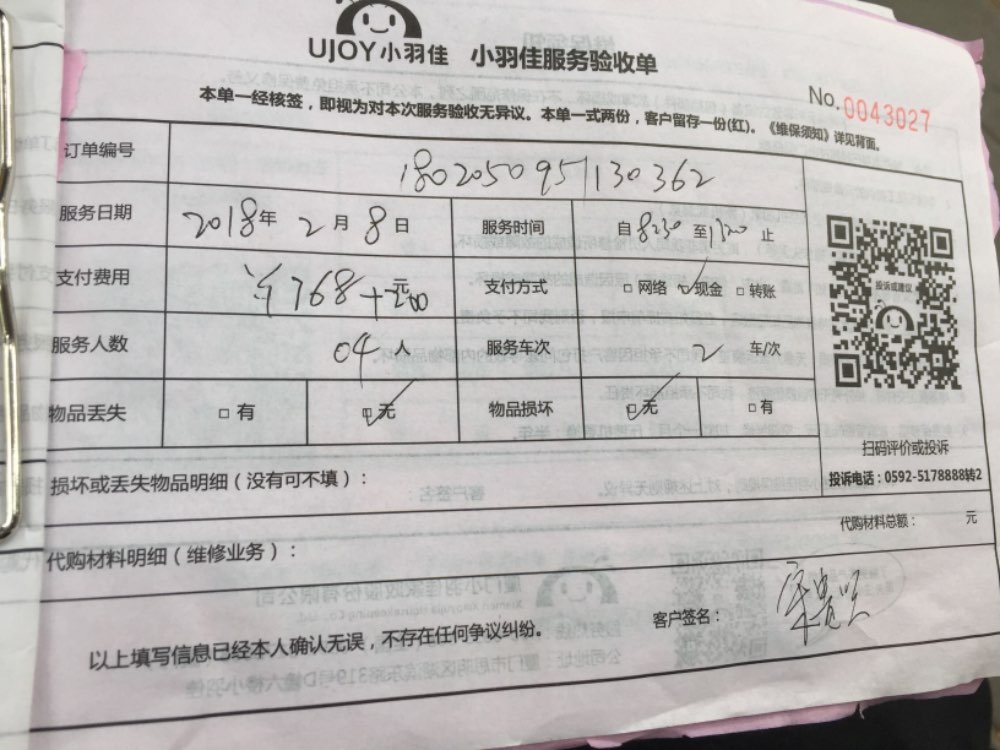 UJOY小羽佳 小羽佳服务验收单
No.0043027
本单一经核签，即视为对本次服务验收无异议。本单一式两份，客户留存一份(红)。《维保须知》详见背面。
订单编号 1802050951130362
服务日期 2018年 2月 8日 服务时间 自8:30至1120止
支付费用 ￥768+200元 支付方式 □网络 ☑现金 □转账
服务人数 04人 服务车次 2 车/次
物品丢失 □有 ☑无 物品损坏 ☑无 □有
投诉或建议
扫码评价或投诉
投诉电话：0592-5178888转2
损坏或丢失物品明细（没有可不填）：
代购材料明细（维修业务）：
代购材料总额： 元
客户签名：
以上填写信息已经本人确认无误，不存在任何争议纠纷。